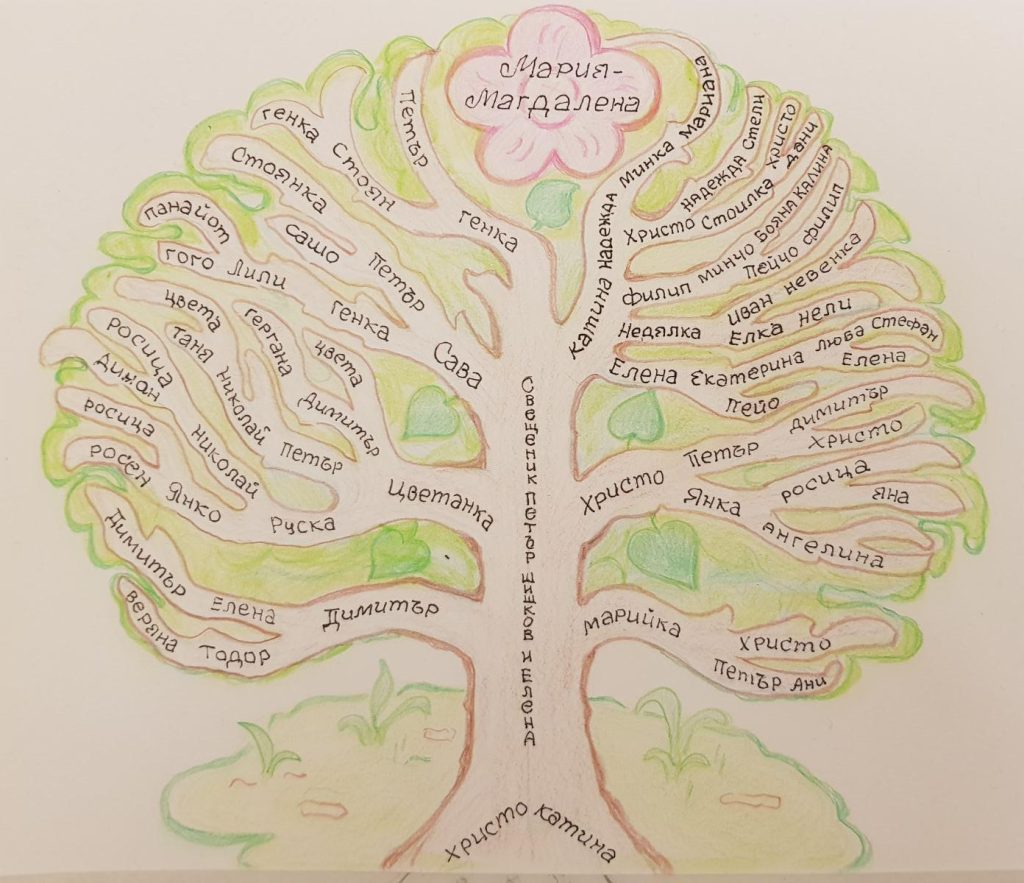 Мария-
Магдалена
Мариана
Минка
Катина Надежда
Петър
Генка
Генка
Стоян
Стоянка
Сашо
Петър
Панайот
Гого Лили
Генка
Сава
Цвета
Таня
Николай
Гергана
Цвета
Димитър
Петър
Росица
Джан
Николай
Росица
Росен
Янко
Руска
Цветанка
Димитър
Елена
Димитър
Веряна
Тодор
Надежда Стели
Христо Стоилка
Христо
Дани
Филип Минчо Бояна Калина
Пейчо Филип
Иван Невенка
Недялка
Елка Нели
Елена Екатерина Люба Стефан
Елена
Пейо
Христо Петър Димитър
Христо
Янка
Росица
Яна
Ангелина
Марийка
Христо
Петър Ани
Свещеник Петър Шишков и Елена
Христо Катина